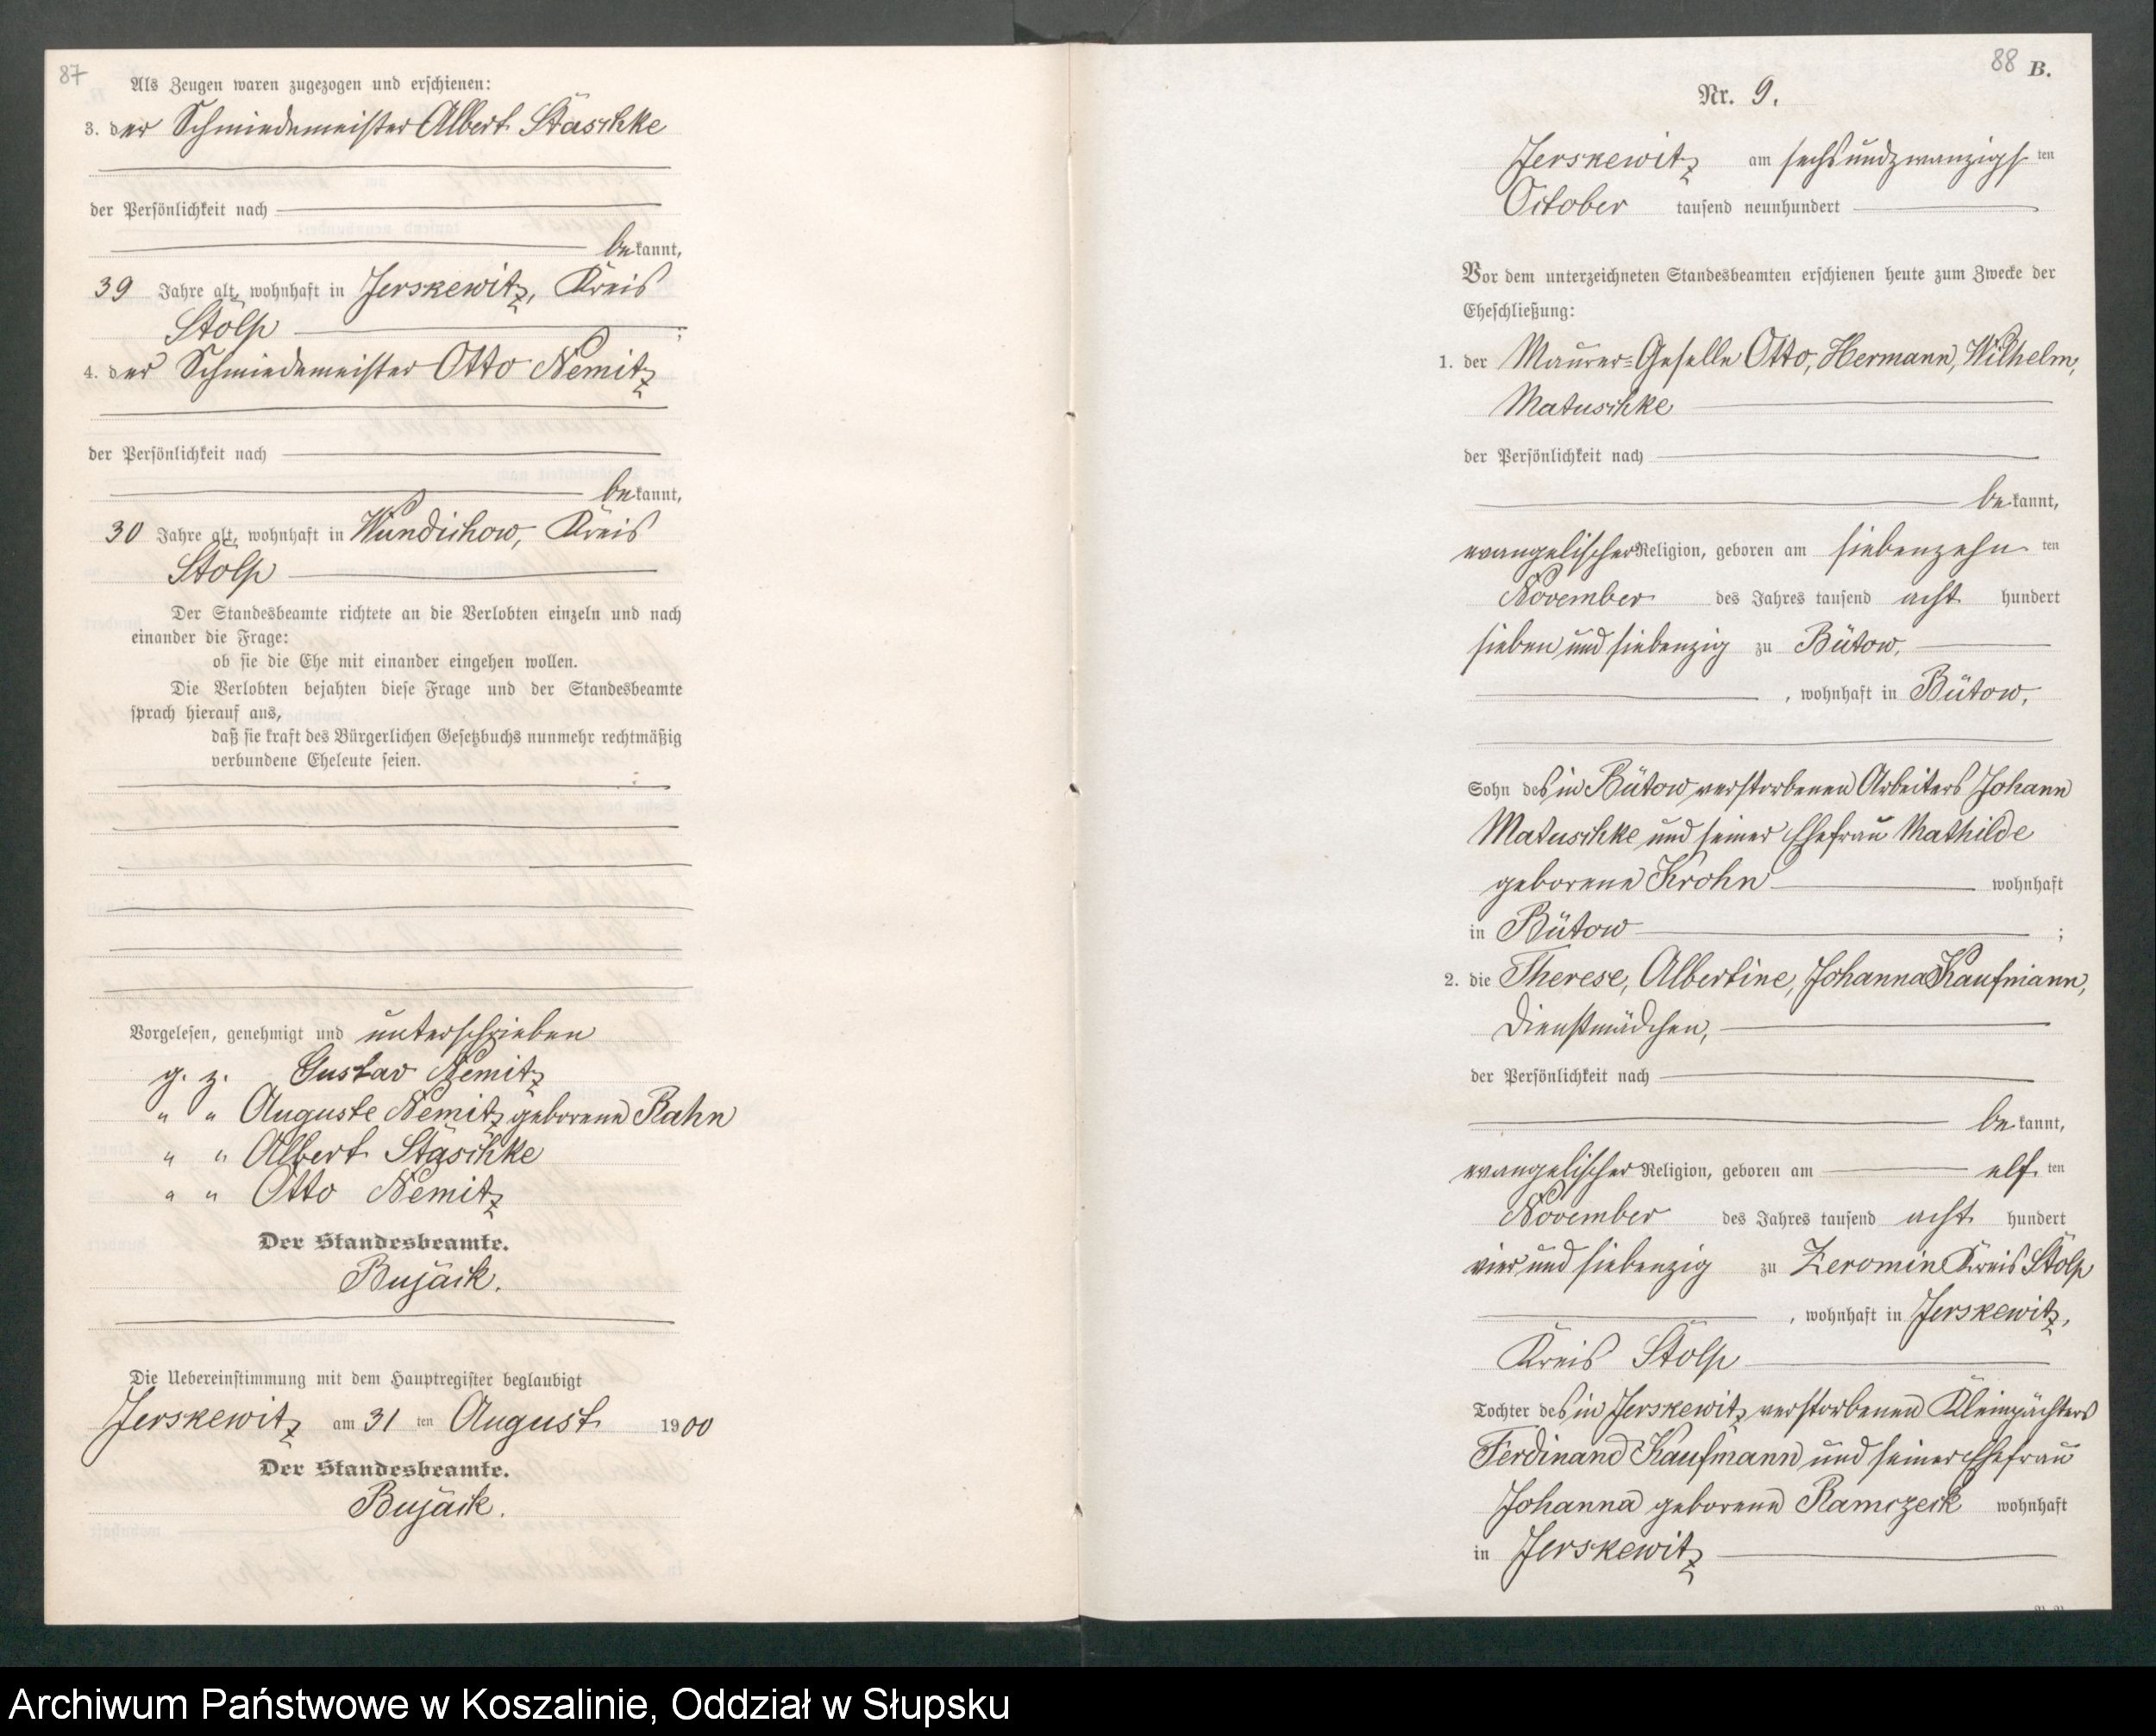 87
Als Zeugen waren zugezogen und erschienen:
3. der Schmiedemeister Albert Stäschke
der Persönlichkeit nach
bekannt,
39 Jahre alt, wohnhaft in Jerskewitz, Kreis
Stolp ;
4. der Schmiedemeister Otto Nemitz
der Persönlichkeit nach
bekannt,
30 Jahre alt, wohnhaft in Wundichow, Kreis
Stolp
Der Standesbeamte richtete an die Verlobten einzeln und nach
einander die Frage:
ob sie die Ehe mit einander eingehen wollen.
Die Verlobten bejahten diese Frage und der Standesbeamte
sprach hierauf aus,
daß sie kraft des Bürgerlichen Gesetzbuchs nunmehr rechtmäßig
verbundene Eheleute seien.
Vorgelesen, genehmigt und unterschrieben
g. z. Gustav Nemitz
" " Auguste Nemitz geborene Rahn
" " Albert Stäschke
" " Otto Nemitz
Der Standesbeamte.
Bujack.
Die Uebereinstimmung mit dem Hauptregister beglaubigt
Jerskewitz am 31 ten August 1900
Der Standesbeamte.
Bujack.
88 B.
Nr. 9.
Jerskewitz am sechsundzwanzigsten
October tausend neunhundert
Vor dem unterzeichneten Standesbeamten erschienen heute zum Zwecke der
Eheschließung:
1. der Maurer-Geselle Otto, Hermann, Wilhelm,
Matuschke
der Persönlichkeit nach
bekannt,
evangelischer Religion, geboren am siebenzehn ten
November des Jahres tausend acht hundert
sieben und siebenzig zu Bütow,
, wohnhaft in Bütow,
Sohn des in Bütow verstorbenen Arbeiters Johann
Matuschke und seiner Ehefrau Mathilde
geborene Krohn wohnhaft
in Bütow ;
2. die Therese, Albertine, Johanna Kaufmann,
Dienstmädchen,
der Persönlichkeit nach
bekannt,
evangelischer Religion, geboren am elf ten
November des Jahres tausend acht hundert
vier und siebenzig zu Zeromin Kreis Stolp
, wohnhaft in Jerskewitz,
Kreis Stolp
Tochter des in Jerskewitz verstorbenen Kleinpächters
Ferdinand Kaufmann und seiner Ehefrau
Johanna geborene Ramczeck wohnhaft
in Jerskewitz
Archiwum Państwowe w Koszalinie, Oddział w Słupsku